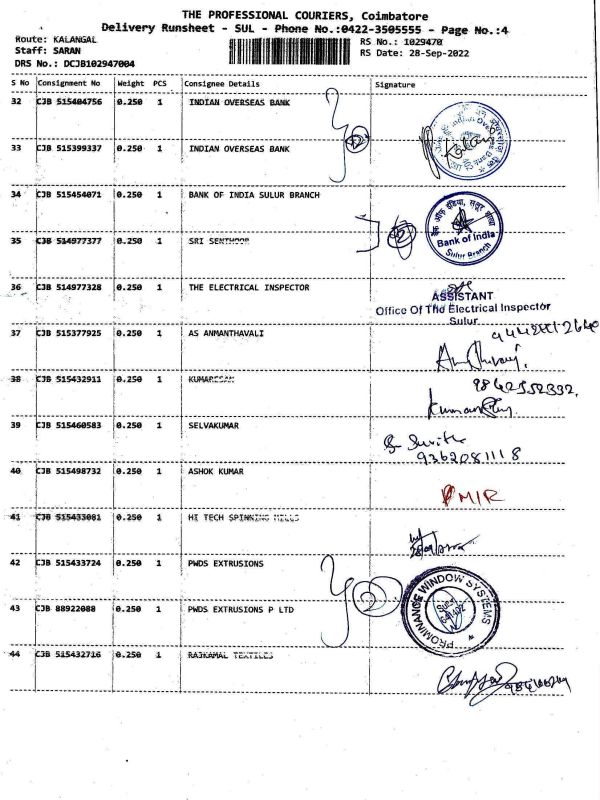 THE PROFESSIONAL COURIERS, Coimbatore
Delivery Runsheet - SUL - Phone No.:0422-3505555 - Page No.:4
Route: KALANGAL
Staff: SARAN
DRS No.: DCJB102947004
RS No.: 1029470
RS Date: 28-Sep-2022
S No Consignment No Weight PCS Consignee Details Signature
32 CJB 515404756 0.250 1 INDIAN OVERSEAS BANK
33 CJB 515399337 0.250 1 INDIAN OVERSEAS BANK
2
34 CJB 515454071 0.250 1 BANK OF INDIA SULUR BRANCH
Bank of India
Sulur Branch
35 CJB 514977377 0.250 1 SRI SENTHOOR
2
36 CJB 514977328 0.250 1 THE ELECTRICAL INSPECTOR
ASSISTANT
Office Of The Electrical Inspector
Sulur
37 CJB 515377925 0.250 1 AS ANMANTHAVALI
38 CJB 515432911 0.250 1 KUMARESAN
9842552332,
39 CJB 515460583 0.250 1 SELVAKUMAR
9362081118
40 CJB 515498732 0.250 1 ASHOK KUMAR
MIR
41 CJB 515433081 0.250 1 HI TECH SPINNING MILLS
42 CJB 515433724 0.250 1 PWDS EXTRUSIONS
2
PROMINANCE WINDOW SYSTEMS
43 CJB 88922088 0.250 1 PWDS EXTRUSIONS P LTD
44 CJB 515432716 0.250 1 RAJKAMAL TEXTILES